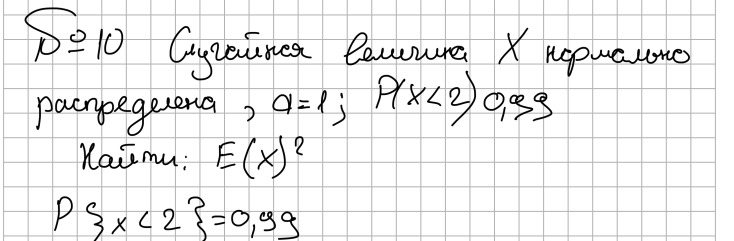 №10 Случайная величина X нормально
распределена, a=1; P(X<2) 0,99
Найти: E(X)²
P{x<2}=0,99